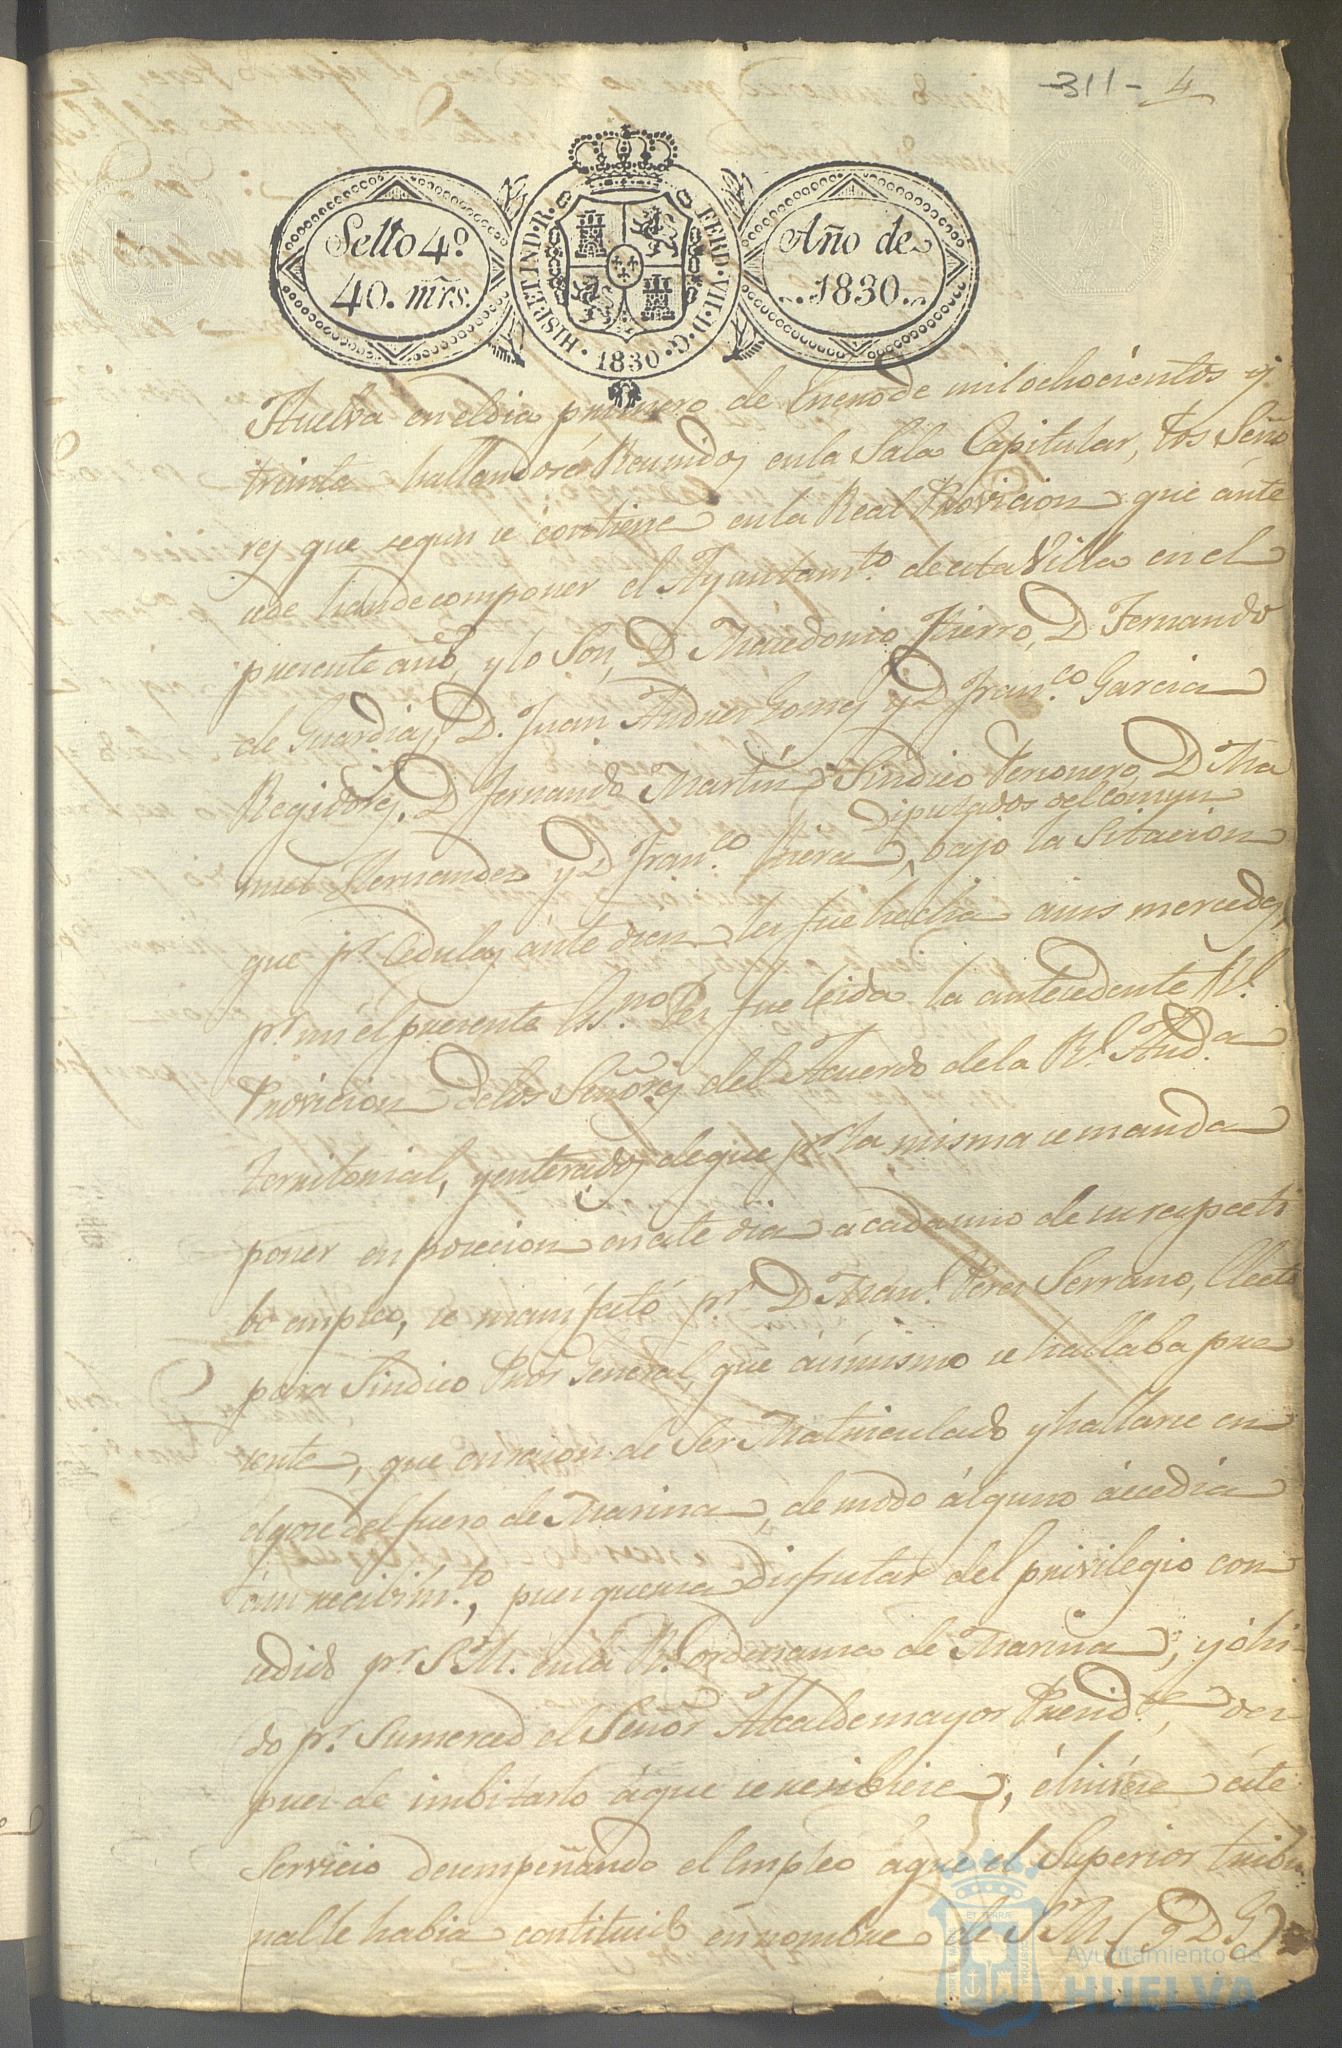 -311- 4
Sello 4º
40. mrs.
HISP. ET IND. R. FERD. VII. D. G.
1830
Año de
1830.
Huelva en el dia primero de Enero de mil ochocientos y
treinta hallandose Reunidos en la Sala Capitular, los Seño
res que segun se contiene en la Real Provicion que ánte
sede han de componer el Ayuntam.to de esta Villa en el
presente año, y lo Son, D. Macedonio Hierro, D. Fernando
de Guardia, D. Juan Andres Gomez y D. Fran.co Garcia
Regidores, D. Fernando Martin Sindico Personero, D. Ma
Diputados del comun
nuel Hernandez y D. Fran.co, bajo la Sitacion
que p.r Cedulas ánte diem les fue hecha a sus mercedes,
p.r mi el presente Es.no les fue leida la antecedente R.l
Provicion de los Señores del Acuerdo de la R.l Aud.a
territorial, y enterados de que p.r la misma se manda
poner en posecion en este dia a cada uno de su respecti
bo empleo, se manifestó p.r D. Man.l Perez Serrano, Electo
para Sindico Pror General, que ásimismo se hallaba pre
sente, que en racion de Ser Matriculado y hallarse en
el gose del fuero de Marina, de modo álguno áccedia
á su recibim.to, pues queria disfrutar del privilegio con
cedido p.r S.M. en la R.l ordenanza de Marina, y óhi-
do p.r Sumerced el Señor Alcalde mayor Presid.te, des-
pues de imbitarlo áque se resibiese, é hiciese éste
Servicio desempeñando el Empleo áque el Superior tribu
nal le habia contituido en nombre de S.M. (q. D. G.)
Ayuntamiento de
HUELVA